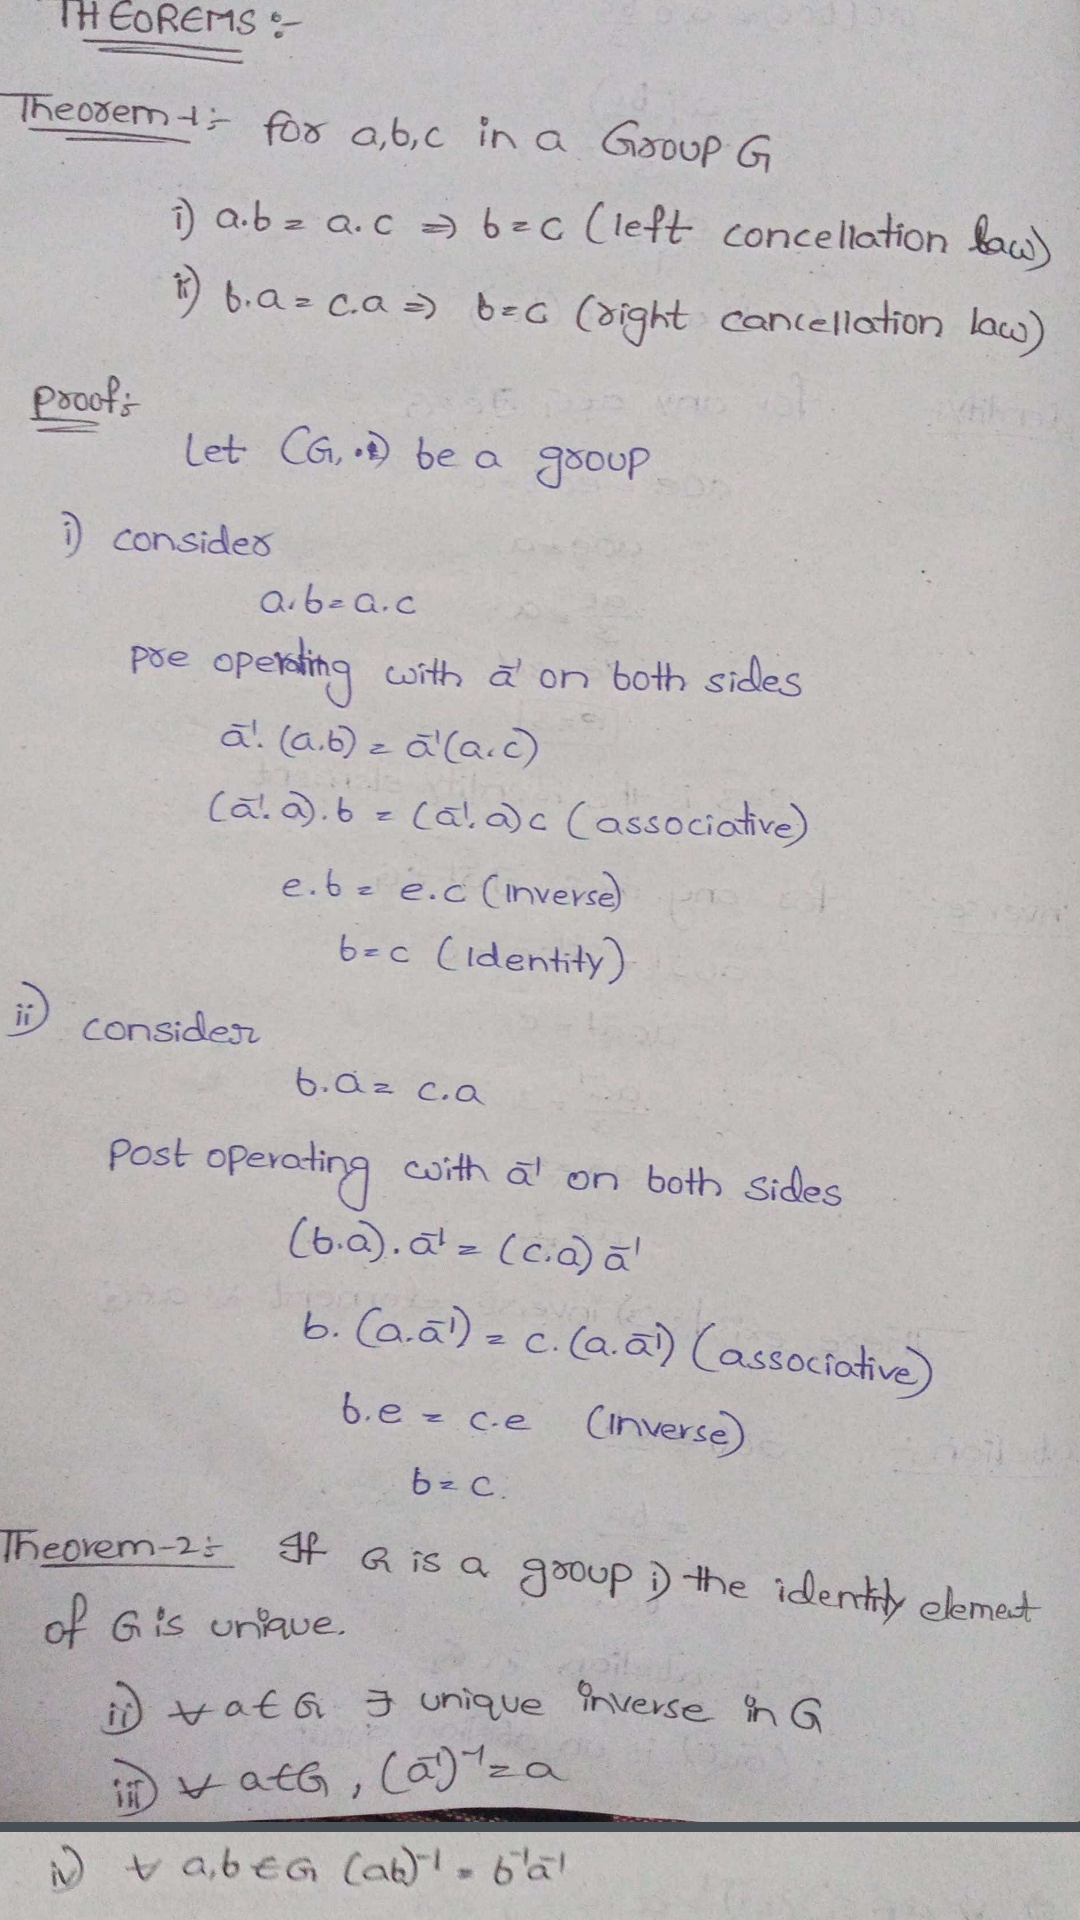 THEOREMS :-
Theorem-1:- for a,b,c in a Group G
i) a.b = a.c ⇒ b=c (left concellation law)
ii) b.a = c.a ⇒ b=c (right cancellation law)
proof:-
Let (G, .) be a group
i) consider
a.b=a.c
pre operating with a⁻¹ on both sides
a⁻¹. (a.b) = a⁻¹(a.c)
(a⁻¹. a).b = (a⁻¹. a)c (associative)
e.b = e.c (inverse)
b=c (Identity)
ii) consider
b.a = c.a
Post operating with a⁻¹ on both sides
(b.a). a⁻¹ = (c.a) a⁻¹
b. (a.a⁻¹) = c. (a.a⁻¹) (associative)
b.e = c.e (Inverse)
b=c.
Theorem-2:- If G is a group i) the identity element
of G is unique.
ii) ∀ a∈G ∃ unique inverse in G
iii) ∀ a∈G, (a⁻¹)⁻¹ = a
iv) ∀ a,b ∈ G (ab)⁻¹ = b⁻¹a⁻¹